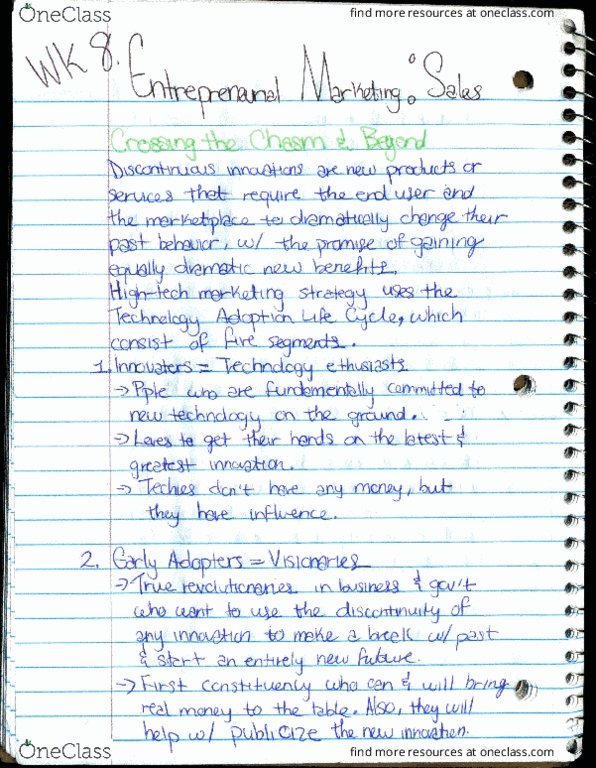 OneClass
find more resources at oneclass.com
WK 8. Entreprenurial Marketing: Sales
Crossing the Chasm & Beyond
Discontinuous innovations are new products or
services that require the end user and
the marketplace to dramatically change their
past behavior, w/ the promise of gaining
equally dramatic new benefits.
High-tech marketing strategy uses the
Technology Adoption Life Cycle, which
consist of five segments.
1. Innovaters = Technology ethusiasts
→ Pple who are fundamentally committed to
new technology on the ground.
→ Loves to get their hands on the latest &
greatest innovation.
→ Techies don't have any money, but
they have influence.
2. Early Adopters = Visionaries
→ True revolutionaries in business & gov't
who want to use the discontinuity of
any innovation to make a break w/ past
& start an entirely new future.
→ First constituency who can & will bring
real money to the table. Also, they will
help w/ publicize the new innovation.
OneClass
find more resources at oneclass.com